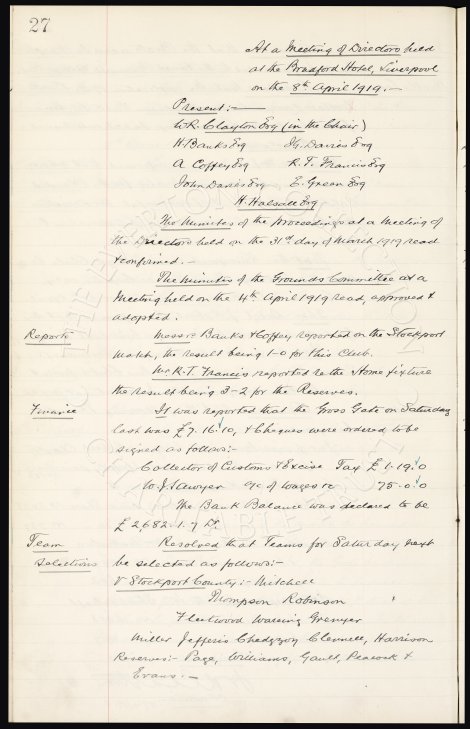 27
At a Meeting of Directors held
at the Bradford Hotel, Liverpool
on the 8th April 1919.—
Present:—
W.R. Clayton Esq (in the Chair)
H Banks Esq Jh. Davies Esq
A Coffey Esq R.T. Francis Esq
John Davies Esq E. Green Esq
H. Halsall Esq
The Minutes of the proceedings at a Meeting of
the Directors held on the 31st day of March 1919 read
& confirmed.—
The Minutes of the Grounds Committee at a
Meeting held on the 4th April 1919 read, approved &
adopted.
Reports Messrs Banks & Coffey reported on the Stockport
match, the result being 1-0 for this Club.
Mr R.T. Francis reported re the Home fixture
the result being 3-2 for the Reserves.
Finance It was reported that the Gross Gate on Saturday
last was £7.16.10, & Cheques were ordered to be
signed as follows:—
Collector of Customs & Excise Tax £1.19.0
W.J. Sawyer a/c of Wages &c 75.0.0
The Bank Balance was declared to be
£2682.1.7 Dr
Team Selections Resolved that Teams for Saturday next
be selected as follows:—
V Stockport County:— Mitchell
Thompson Robinson
Fleetwood Wareing Grenyer
Miller Jefferis Chedgzoy Clennell, Harrison
Reserves:— Page, Williams, Gault, Peacock &
Evans.—
THE EVERTON COLLECTION
CHARITABLE TRUST